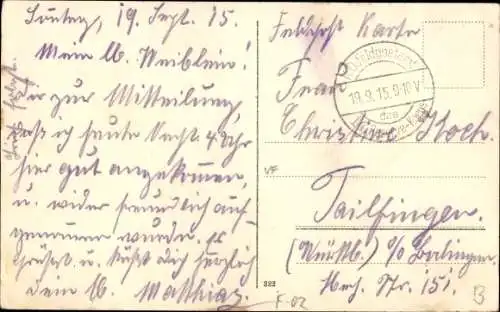 Sonntag, 19. Sept. 15.
Mein lb. Weiblein!
Dir zur Mitteilung,
daß ich heute Nacht 4 Uhr
hier gut angekommen,
u. wider freundlich auf-
genommen wurde. Es
Grüßt u. Küßt Dich herzlich
Dein lb. Matthias.
Feldpost Karte
Frau
Christine Koch.
Tailfingen.
(Württb.) O/A Balingen.
Hech. Str. 151.
19.9.15. 9-10 V
des
VF
222
F-02
B